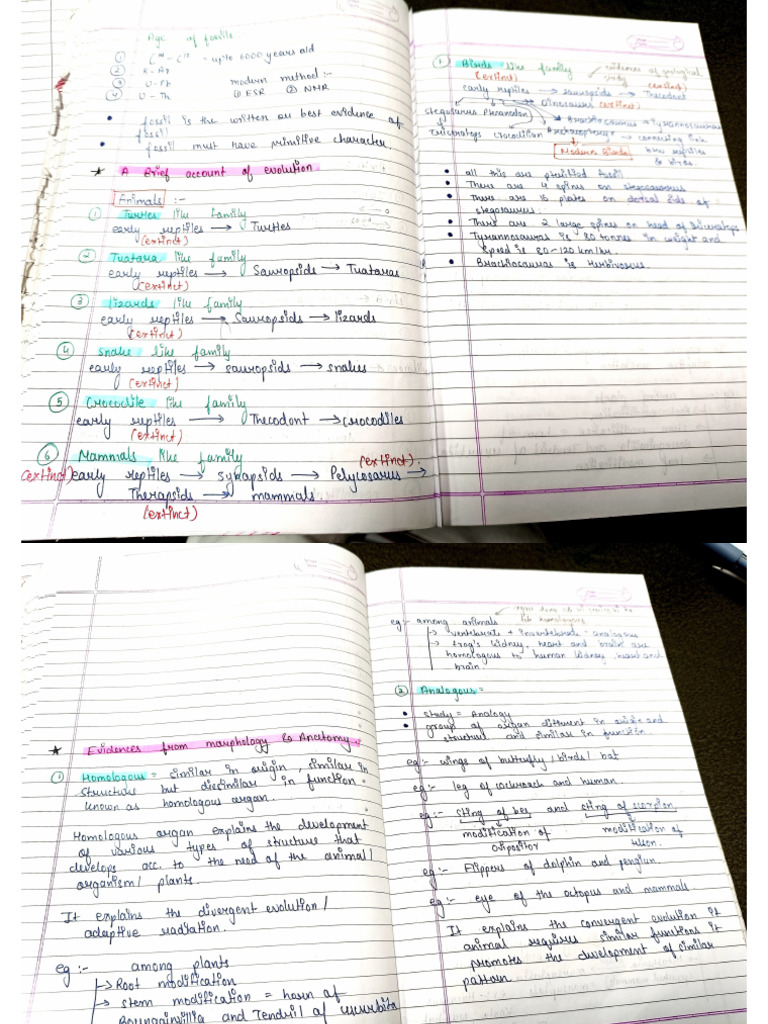 Age of fossils
① C¹⁴ - C¹² - upto 6000 years old
② K - Ar
③ U - Pb modern method :-
④ U - Th ① ESR ② NMR
• fossil is the written or best evidence of
fossil
• fossil must have primitive character
* A Brief account of evolution
Animals :-
① Turtles like family
early reptiles → Turtles
(extinct)
② Tuatara like family
early reptiles → Sauropsids → Tuataras
(extinct)
③ lizards like family
early reptiles → Sauropsids → lizards
(extinct)
④ snake like family
early reptiles → sauropsids → snakes
(extinct)
⑤ Crocodile like family
early reptiles → Thecodont → crocodiles
(extinct)
⑥ Mammals like family (extinct)
(extinct) early reptiles → synapsids → Pelycosarus →
Therapsids → mammals
(extinct)
Birds like family evidence of geological
(extinct) study (extinct)
early reptiles → sauropsids → Thecodont
Dinosaurs (extinct)
stegosurus Pteranodon Brachiosaurus Tyrannosaurus
Triceratops crocodilian Archaeopteryx → connecting link
Modern Birds b/w reptiles
& birds.
• all this are petrified fossil
• There are 4 spines on stegosaurus
• There are 15 plates on dorsal side of
stegosaurus
• There are 2 large spines on head of Triceratops
• Tyrannosaurus is 80 tonnes in weight and
speed is 80-120 km/hr.
• Brachiosaurus is Herbivorus
* Evidences from morphology & Ancetomy
① Homologous = similar in origin, similar in
structure but dissimilar in function
known as homologous organ.
Homologous organ explains the development
of various types of structure that
develops acc. to the need of the animal/
organism/ plants.
It explains the divergent evolution/
adaptive radiation.
eg :- among plants
→ Root modification
→ stem modification = horn of
Bouganivillia and Tendril of cucurbita
eg :- among animals
→ vertebrate + invertebrate = analogous
→ frog's kidney, heart and brain are
homologous to human kidney, heart and
brain.
② Analogous =
• study = Analogy
• group of organ different in origin and
structure and similar in function
eg :- wings of butterfly / birds / bat
eg :- leg of cockroach and human
eg :- sting of bee and sting of scorpion
modification of modification of
ovipositor telson.
eg :- Flippers of dolphin and penguin
eg :- eye of the octopus and mammals
It explains the convergent evolution it
animal requires similar functions it
promotes the development of similar
pattern